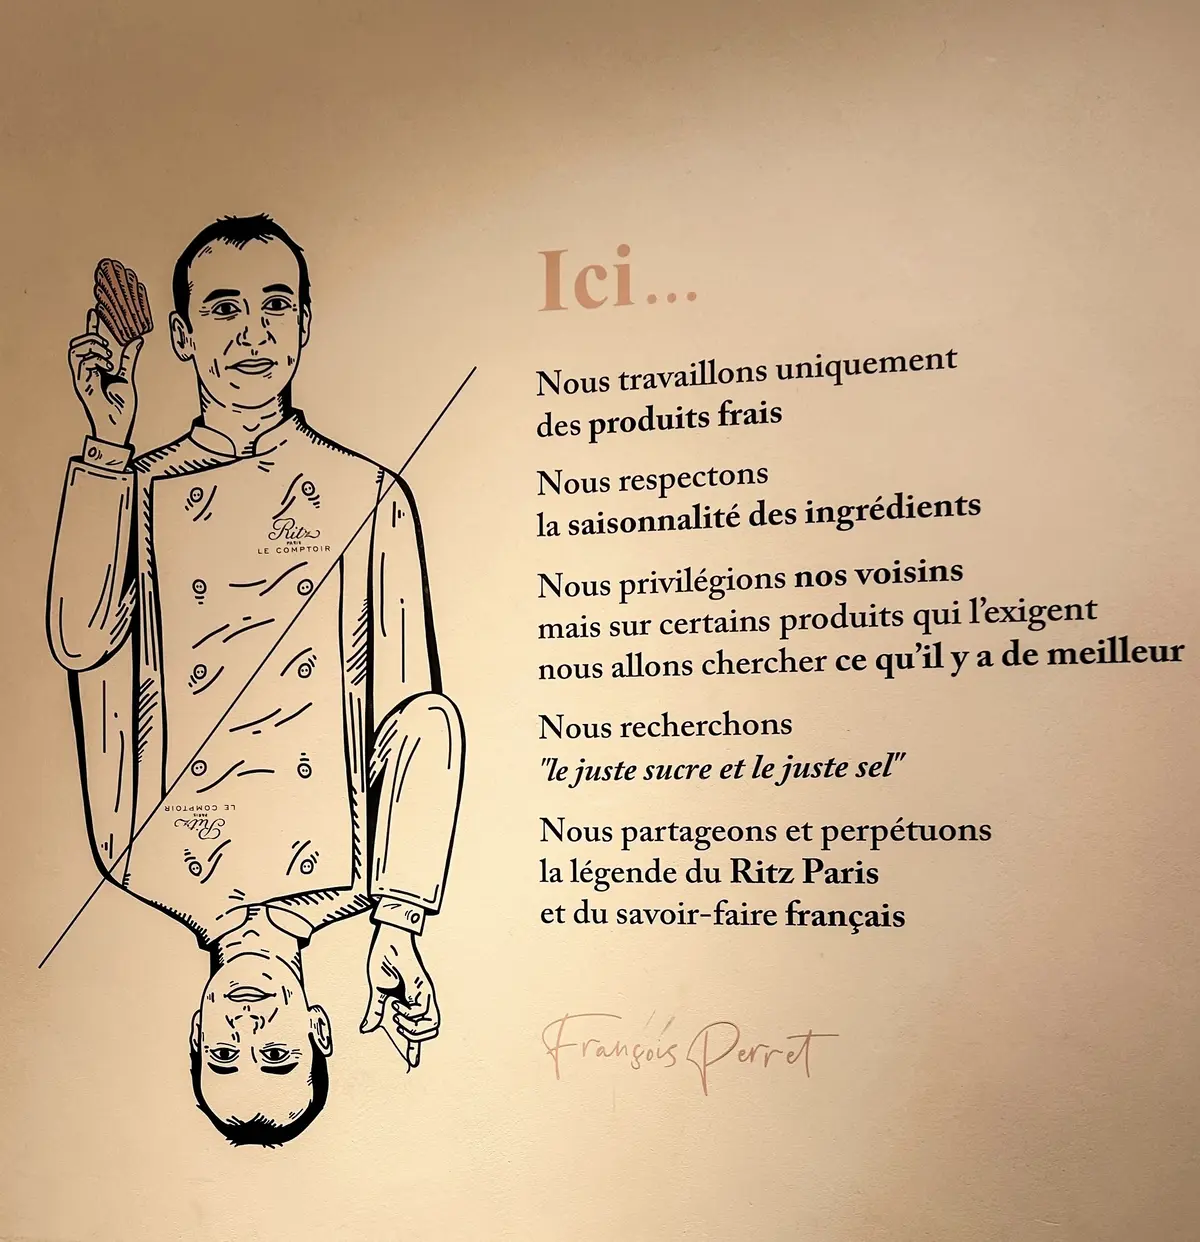 Ici...
Nous travaillons uniquement
des produits frais
Nous respectons
la saisonnalité des ingrédients
Nous privilégions nos voisins
mais sur certains produits qui l'exigent
nous allons chercher ce qu'il y a de meilleur
Nous recherchons
"le juste sucre et le juste sel"
Nous partageons et perpétuons
la légende du Ritz Paris
et du savoir-faire français
François Perret
Ritz
PARIS
LE COMPTOIR
LE COMPTOIR
PARIS
Ritz